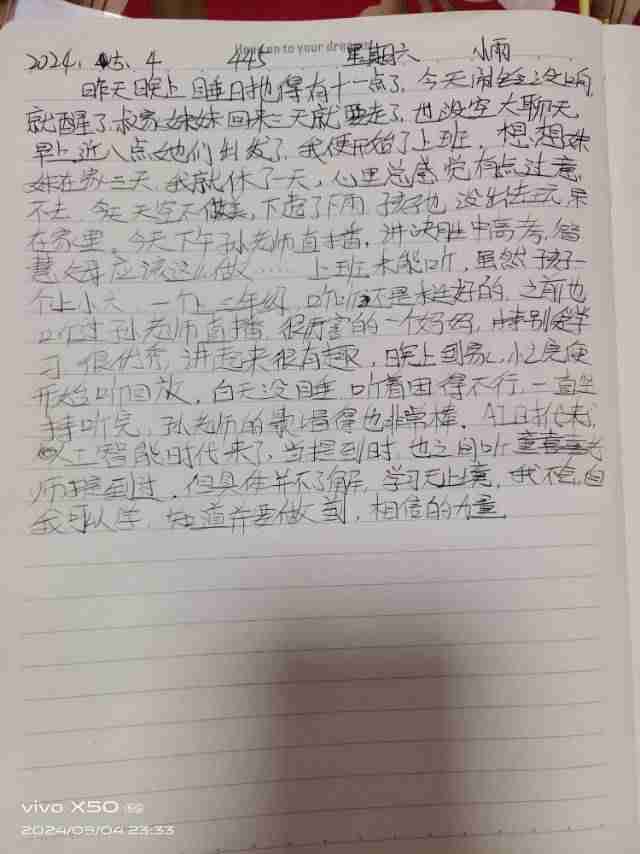 Hang on to your dreams!
2024. 5. 4 445 星期六 小雨
昨天晚上睡日地得有十一点了，今天闹铃没响
就醒了，叔家妹妹回来三天就要走了，也没空大聊天，
早上近八点她们出发了，我便开始了上班，想想妹
妹在家三天，我就休了一天，心里总感觉有点过意
不去，今天天空不做美，下起了下雨，孩子也没出去玩，呆
在家里。今天下午孙老师直播，讲决胜中高考，智
慧父母应该这么做……上班未能听，虽然孩子一
个上小六，一个上二年级，听听还是挺好的，之前也
听过孙老师直播，很厉害的一个妈妈，特别爱学
习，很优秀，讲起来很有趣，晚上到家，小之后便
开始听回放，白天没睡，听着困得不行，一直坚
持听完，孙老师的歌唱得也非常棒。AI时代来了，
人工智能时代来了，当提到时，也之间听
师提到过，但具体并不了解，学习无止境，我不会，但
我可以学，知道并要做到，相信的力量
vivo X50 5G
2024/05/04 23:33